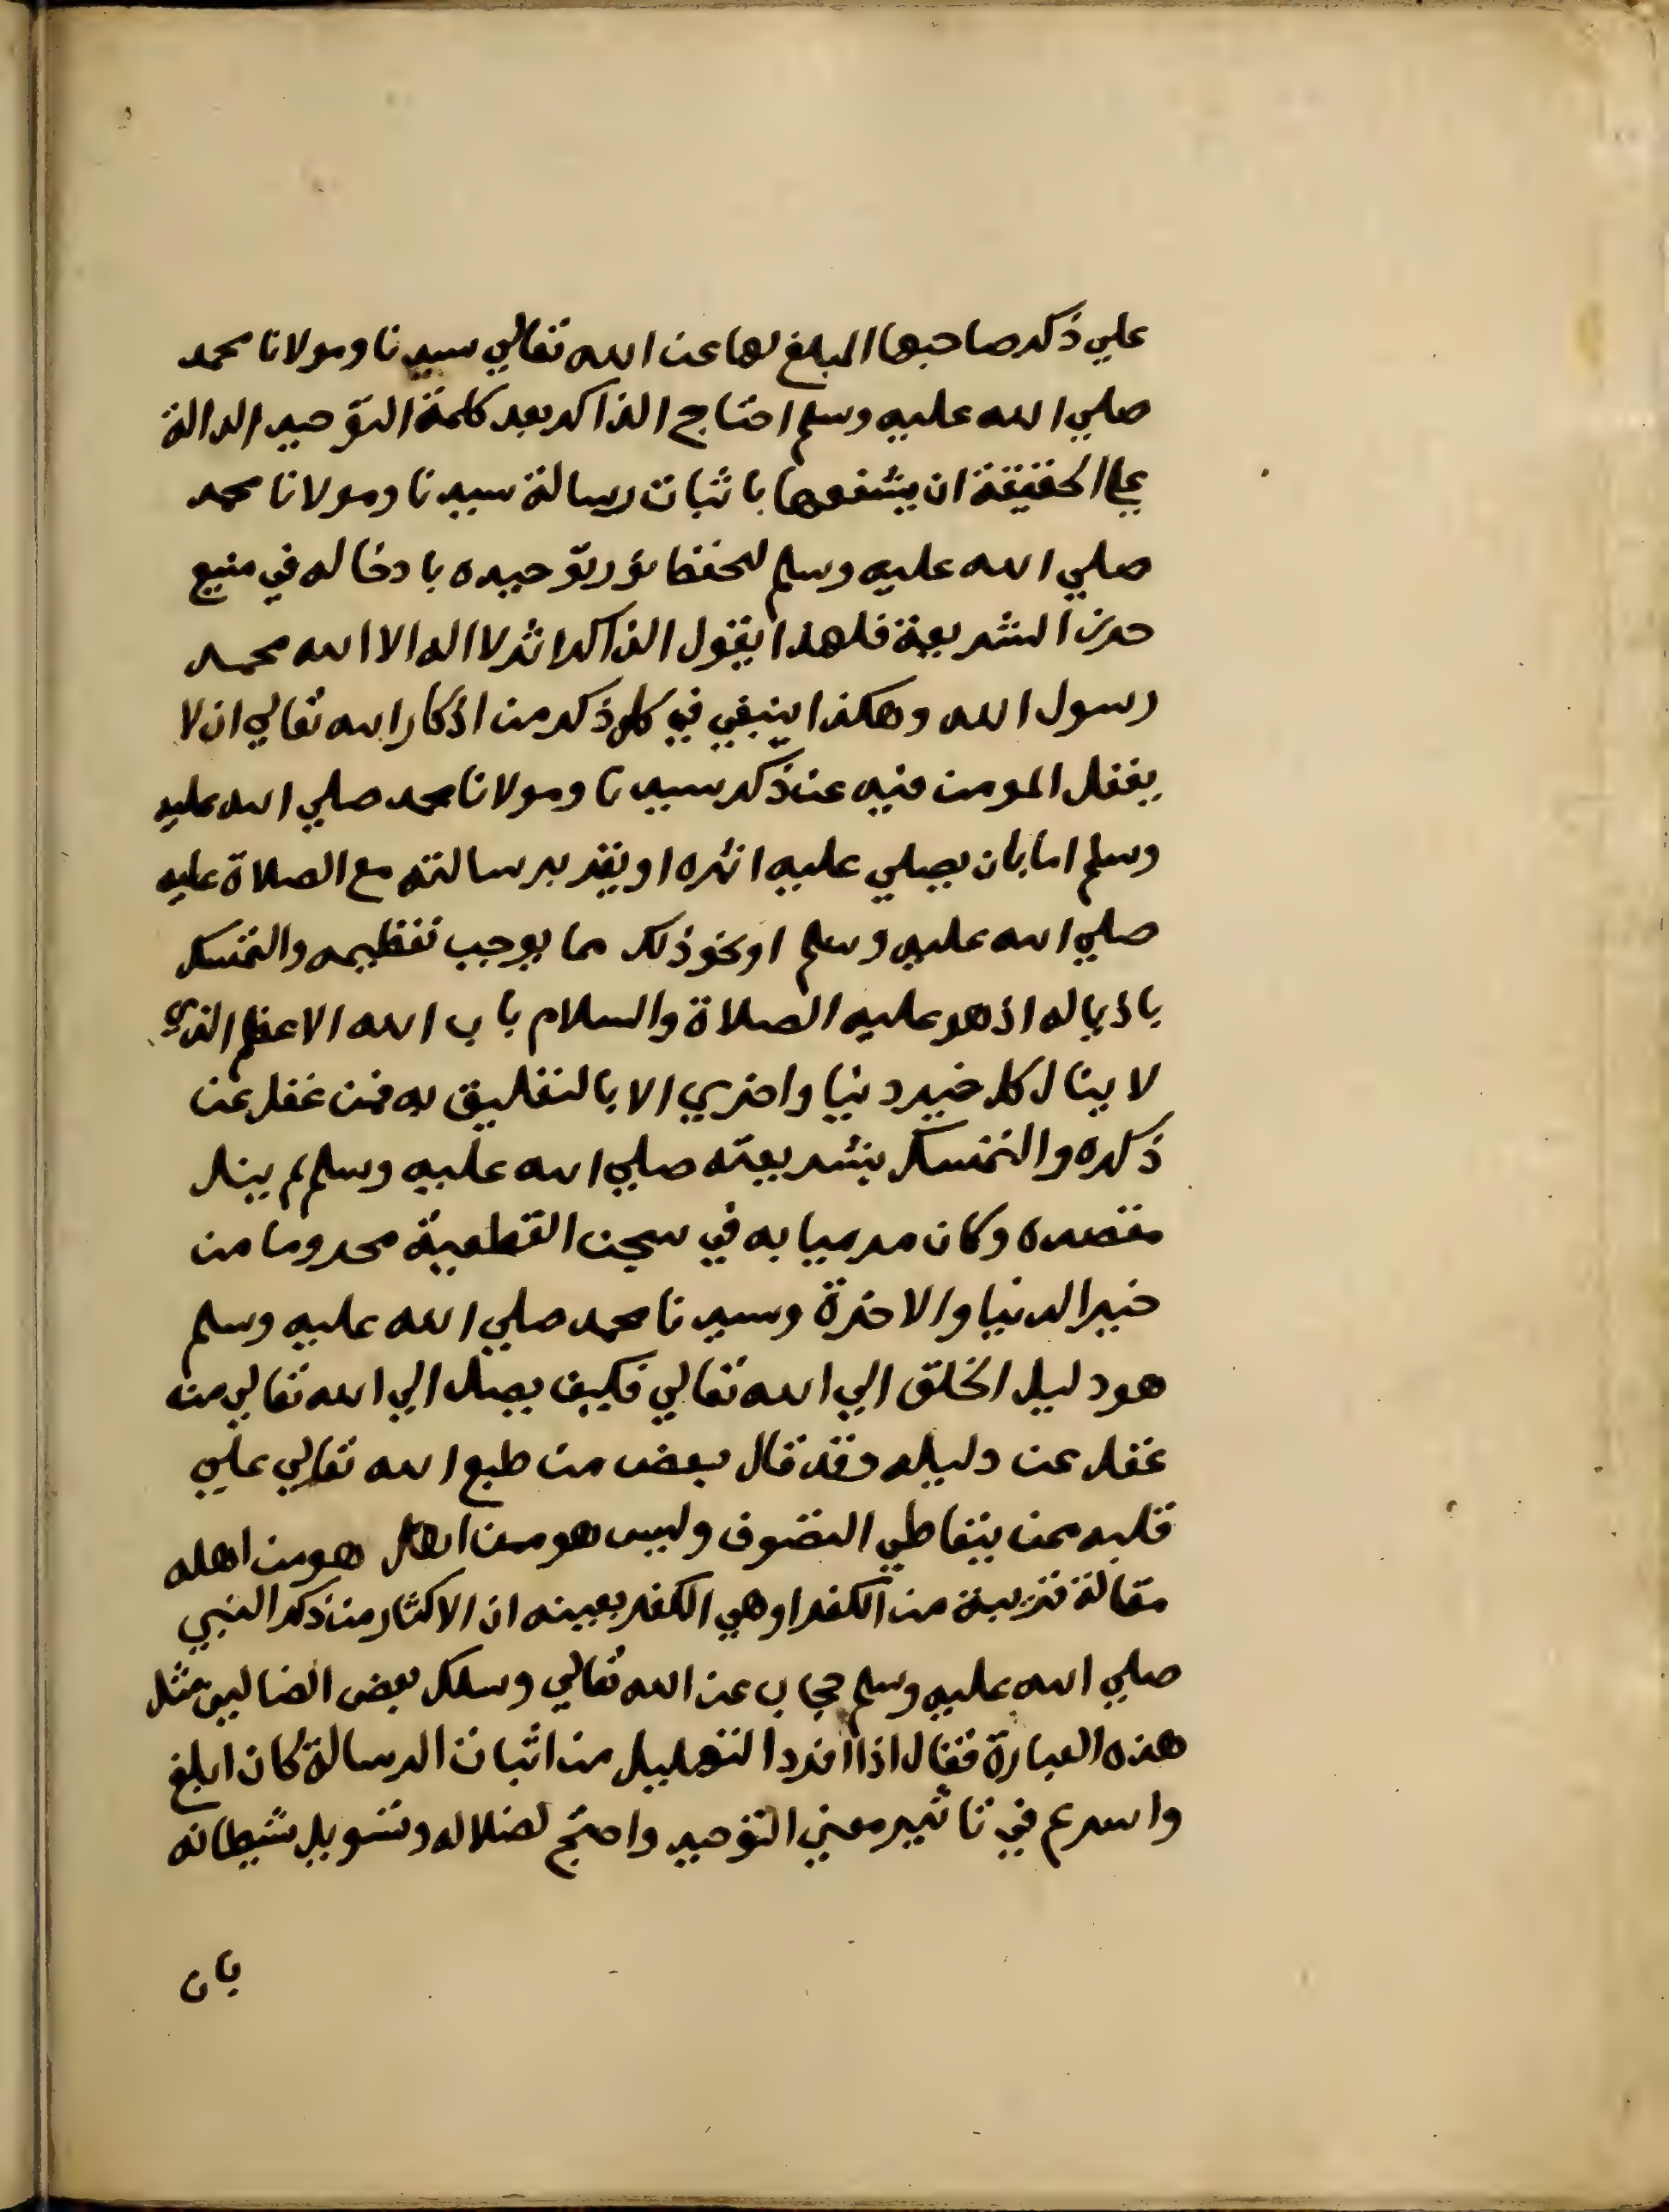 علي ذكر صاحبها المبلغ لها عن الله تعالي سيدنا ومولانا محمد
صلي الله عليه وسلم احتاج الذاكر بعد كلمة التوحيد الدالة
علي الحقيقة ان يشفعها باثبات رسالة سيدنا ومولانا محمد
صلي الله عليه وسلم لحفظ نور توحيده بادخاله في منيع
حرز الشريعة فلهذا يقول الذاكر اثر لا اله الا الله محمد
رسول الله وهكذا ينبغي في كل ذكر من اذكار الله تعالي ان لا
يغفل المومن فيه عن ذكر سيدنا ومولانا محمد صلي الله عليه
وسلم اما بان يصلي عليه اثره او يقر برسالته مع الصلاة عليه
صلي الله عليه وسلم او نحو ذلك مما يوجب تعظيمه والتمسك
باذياله اذ هو عليه الصلاة والسلام باب الله الاعظم الذي
لا ينال كل خير دنيا واخري الا بالتعليق به فمن غفل عن
ذكره والتمسك بشريعته صلي الله عليه وسلم لم ينل
مقصده وكان مرميا به في سجن القطعية محروما من
خير الدنيا والاخرة وسيدنا محمد صلي الله عليه وسلم
هو دليل الخلق الي الله تعالي فكيف يصل الي الله تعالي من
غفل عن دليله وقد قال بعض من طبع الله تعالي علي
قلبه ممن يتعاطي التصوف وليس هو من اهل هو من اهله
مقالة قريبة من الكفر او هي الكفر بعينه ان الاكثار من ذكر النبي
صلي الله عليه وسلم حجاب عن الله تعالي وسلك بعض الضالين مثل
هذه العبارة فقال اذا افرد التهليل من اثبات الرسالة كان ابلغ
واسرع في تاثير معني التوحيد واحتج لضلاله وتسويل شيطانه
بان